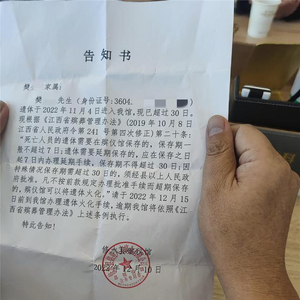 告知书
樊 家属:
樊 先生(身份证号:3604.
遗体于2022年11月4日进入我馆,现已超过30日。
现根据《江西省殡葬管理办法》(2019年10月8日
江西省人民政府令第241号第四次修正)第二十条:
“死亡人员的遗体需要在殡仪馆保存的,保存期一
般不超过7日;遗体需要延期保存的,应在保存之日
起7日内办理延期手续,保存不得超过30日;因
特殊情况保存期需要超过30日的,须经县以上人民政
府批准。凡不按前款规定办理批准手续而超期保存
的,殡仪馆可以将遗体火化。”请于2022年12月15
日前到我馆办理遗体火化手续,逾期我馆将依照《江
西省殡葬管理办法》上述条例执行。
特此告知!
2022年12月10日